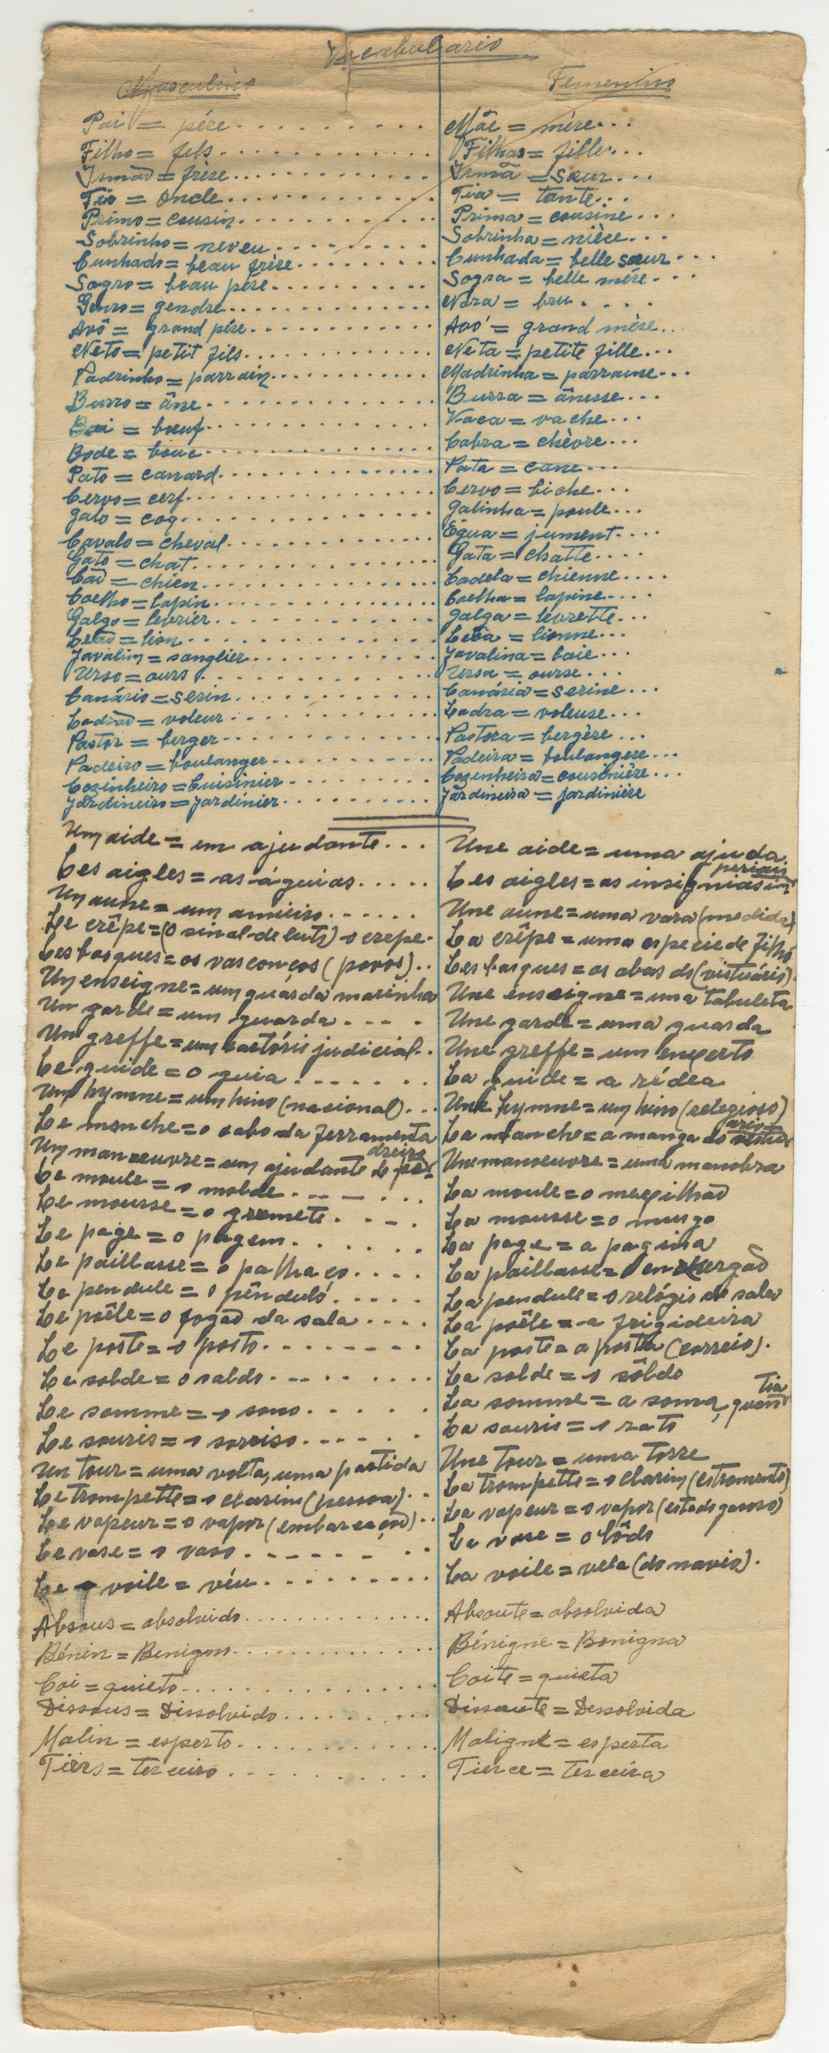 Vocabulario
Masculino
Femenino
Pai = pére
Mãe = mère
Filho = fils
Filha = fille
Irmão = frère
Irmã = sœur
Tio = oncle
Tia = tante
Primo = cousin
Prima = cousine
Sobrinho = neveu
Sobrinha = nièce
Cunhado = beau frère
Cunhada = belle sœur
Sogro = beau père
Sogra = belle mére
Genro = gendre
Nora = bru
Avô = grand père
Avó = grand mère
Neto = petit fils
Neta = petite fille
Padrinho = parrain
Madrinha = parraine
Burro = âne
Burra = ânesse
Boi = bœuf
Vaca = vache
Bode = bouc
Cabra = chèvre
Pato = canard
Pata = cane
Cervo = cerf
Cervo = biche
Galo = coq
Galinha = poule
Cavalo = cheval
Égua = jument
Gato = chat
Gata = chatte
Cão = chien
Cadela = chienne
Coelho = lapin
Coelha = lapine
Galgo = lebrier
Galga = levrette
Leão = lion
Leôa = lionne
Javalim = sanglier
Javalina = laie
Urso = ours
Ursa = ourse
Canário = serin
Canária = serine
Ladrão = voleur
Ladra = voleuse
Pastor = berger
Pastora = bergère
Padeiro = boulanger
Padeira = boulangere
Cozinheiro = Cuisinier
Cozinheira = cousinière
Jardineiro = jardinier
Jardineira = jardinière
Un aide = um ajudante
Une aide = uma ajuda
Les aigles = as águias
Les aigles = as insignias im periais
Un aune = um amieiro
Une aune = uma vara (medida)
Le crêpe = (o sinal de luto) o crepe
La crêpe = uma especie de filhó
Les basques = os vasconços (povos)
Les basques = as abas do (vistuário)
Un enseigne = um guarda marinha
Une enseigne = uma tabuleta
Un garde = um guarda
Une garde = uma guarda
Un greffe = um cartório judicial
Une greffe = um enxerto
Le guide = o guia
La guide = a rédea
Un hymne = um hino (nacional)
Une hymne = um hino (relegioso)
Le manche = o cabo da ferramenta
La manche = a manga do
Un manoeuvre = um ajudante de pe- dreiro
Une manoeuvre = uma manobra
Le moule = o molde
La moule = o mexilhão
Le mousse = o grumete
La mousse = o musgo
Le page = o pagem
La page = a pagina
Le paillasse = o palhaço
La paillasse = o enxergão
Le pendule = o pênduló
La pendule = o relógio de sala
Le poêle = o fogão da sala
La poêle = a frigideira
Le poste = o posto
La poste = a posta (correio)
Le solde = o saldo
La solde = o sôldo
Le somme = o sono
La somme = a soma, quan tia
Le souris = o sorriso
La souris = o rato
Un tour = uma volta, uma partida
Une tour = uma torre
Le trompette = o clarim (pessoa)
La trompette = o clarim (estromento)
Le vapeur = o vapor (embarcação)
La vapeur = o vapor (estado gasoso)
Le vase = o vaso
La vase = o lôdo
Le voile = véu
La voile = vela (do navio)
Absous = absolvido
Absoute = absolvida
Bénin = Benigno
Bénigne = Benigna
Coi = quieto
Coite = quieta
Dissous = Dissolvido
Dissoute = Dessolvida
Malin = esperto
Maligne = esperta
Tiers = terceiro
Tierce = terceira